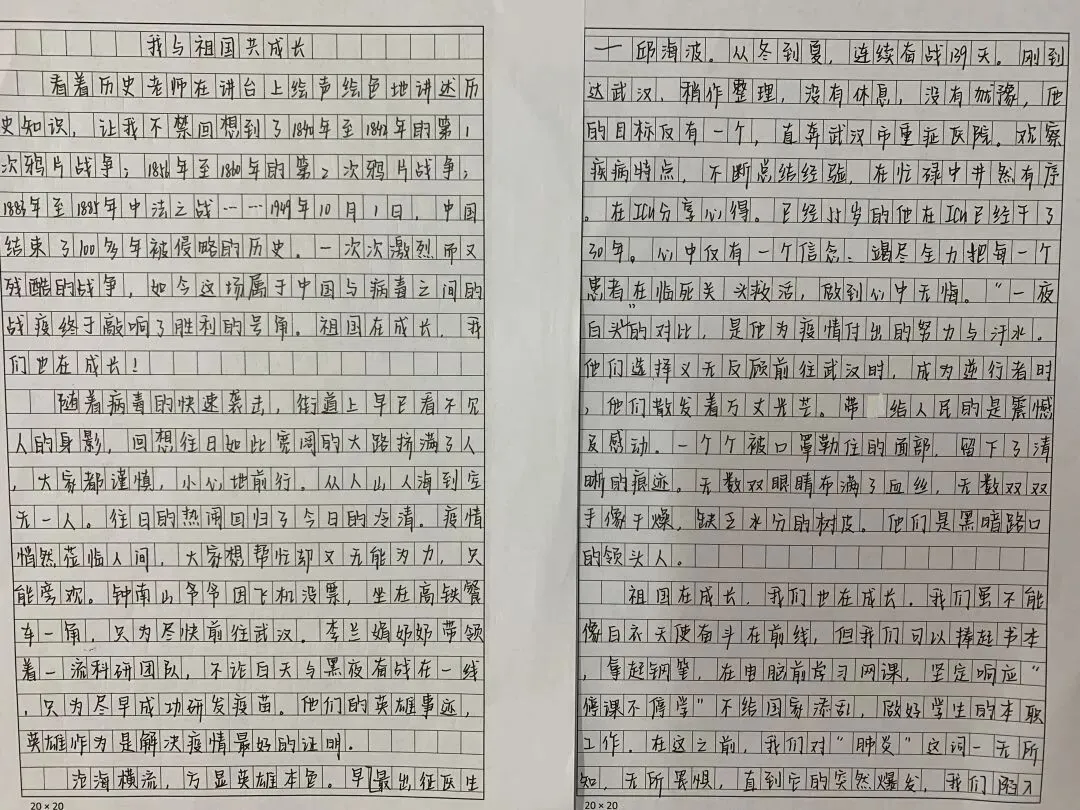 我与祖国共成长
看着历史老师在讲台上绘声绘色地讲述历
史知识，让我不禁回想到了1840年至1842年的第1
次鸦片战争；1856年至1860年的第2次鸦片战争；
1883年至1885年中法之战……1949年10月1日，中国
结束了100多年被侵略的历史。一次次激烈而又
残酷的战争，如今这场属于中国与病毒之间的
战疫终于敲响了胜利的号角。祖国在成长，我
们也在成长！
随着病毒的快速袭击，街道上早已看不见
人的身影，回想往日如此宽阔的大路挤满了人
，大家都谨慎，小心地前行。从人山人海到空
无一人。往日的热闹回归了今日的冷清。疫情
悄然莅临人间，大家想帮忙却又无能为力，只
能旁观。钟南山爷爷因飞机没票，坐在高铁餐
车一角，只为尽快前往武汉。李兰娟奶奶带领
着一流科研团队，不论白天与黑夜奋战在一线
，只为尽早成功研发疫苗。他们的英雄事迹，
英雄作为是解决疫情最好的证明。
沧海横流，方显英雄本色。早最出征医生
20×20
一邱海波。从冬到夏，连续奋战139天。刚到
达武汉，稍作整理，没有休息，没有犹豫，他
的目标仅有一个，直奔武汉市重症医院。观察
疾病特点，不断总结经验，在忙碌中井然有序
。在ICU分享心得。已经55岁的他在ICU已经干了
30年。心中仅有一个信念、竭尽全力把每一个
患者在临死关头救活，做到心中无悔。“一夜
白头”的对比，是他为疫情付出的努力与汗水。
他们选择义无反顾前往武汉时，成为逆行者时
，他们散发着万丈光芒。带 给人民的是震憾
及感动。一个个被口罩勒住的面部，留下了清
晰的痕迹。无数双眼睛布满了血丝，无数双双
手像干燥，缺乏水分的树皮。他们是黑暗路口
的领头人。
祖国在成长，我们也在成长。我们虽不能
像白衣天使奋斗在前线，但我们可以捧起书本
，拿起钢笔，在电脑前学习网课，坚定响应“
停课不停学”不给国家添乱，做好学生的本职
工作。在这之前，我们对“肺炎”这词一无所
知，无所畏惧，直到它的突然爆发，我们陷入
20×20